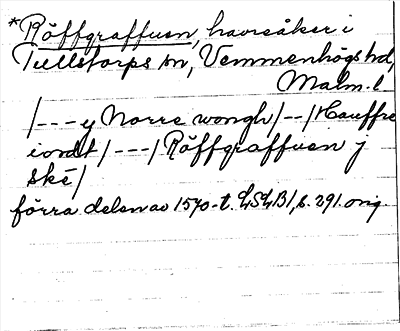 *Röffgraffuen, havreåker i
Tullstorps sn, Vemmenhögs hd,
Malm. l
/---y Norre wongh/--/Hauffre
iordt/---/Röffgraffuen j
skè/
förra delen av 1570-t. LSLB1, s. 291. orig.